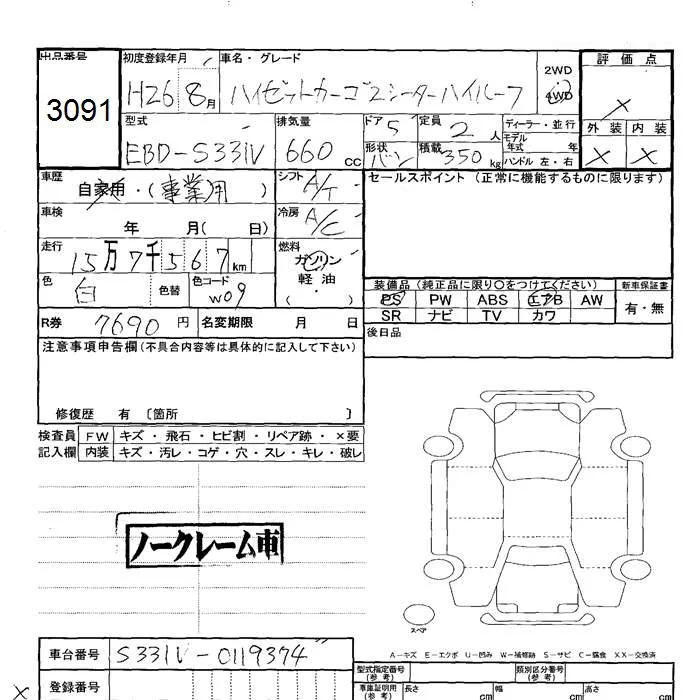 出品番号
3091
初度登録年月
H26 8月
車名・グレード
ハイゼットカーゴ2シーターハイルーフ
2WD
4WD
評価点
×
外装 内装
× ×
型式
EBD-S331V
排気量
660 cc
ドア 5
形状
バン
定員
2 人
積載
350 kg
ディーラー・並行
モデル
年式 年
ハンドル 左・右
車歴
自家用・(事業)用 )
シフト
A/T
セールスポイント (正常に機能するものに限ります)
車検
年 月( 日)
冷房
A/C
走行
15万7千567km
燃料
ガソリン
軽油
( ・ )
色
白
色替
色コード
W09
装備品 (純正品に限り○をつけてください)
新車保証書
PS PW ABS エアB AW
SR ナビ TV カワ
有・無
R券 7690円
名変期限 月 日
後日品
注意事項申告欄(不具合内容等は具体的に記入して下さい)
修復歴 有 〔箇所 〕
検査員
記入欄
FW キズ・飛石・ヒビ割・リペア跡・×要
内装 キズ・汚レ・コゲ・穴・スレ・キレ・破レ
ノークレーム車
スペア
A-キズ E-エクボ U-凹み W-補修跡 S-サビ C-腐食 XX-交換済
車台番号 S331V-0119374
登録番号
×
型式指定番号
(参考)
類別区分番号
(参考)
車庫証明用
(参考)
長さ cm
幅 cm
高さ cm